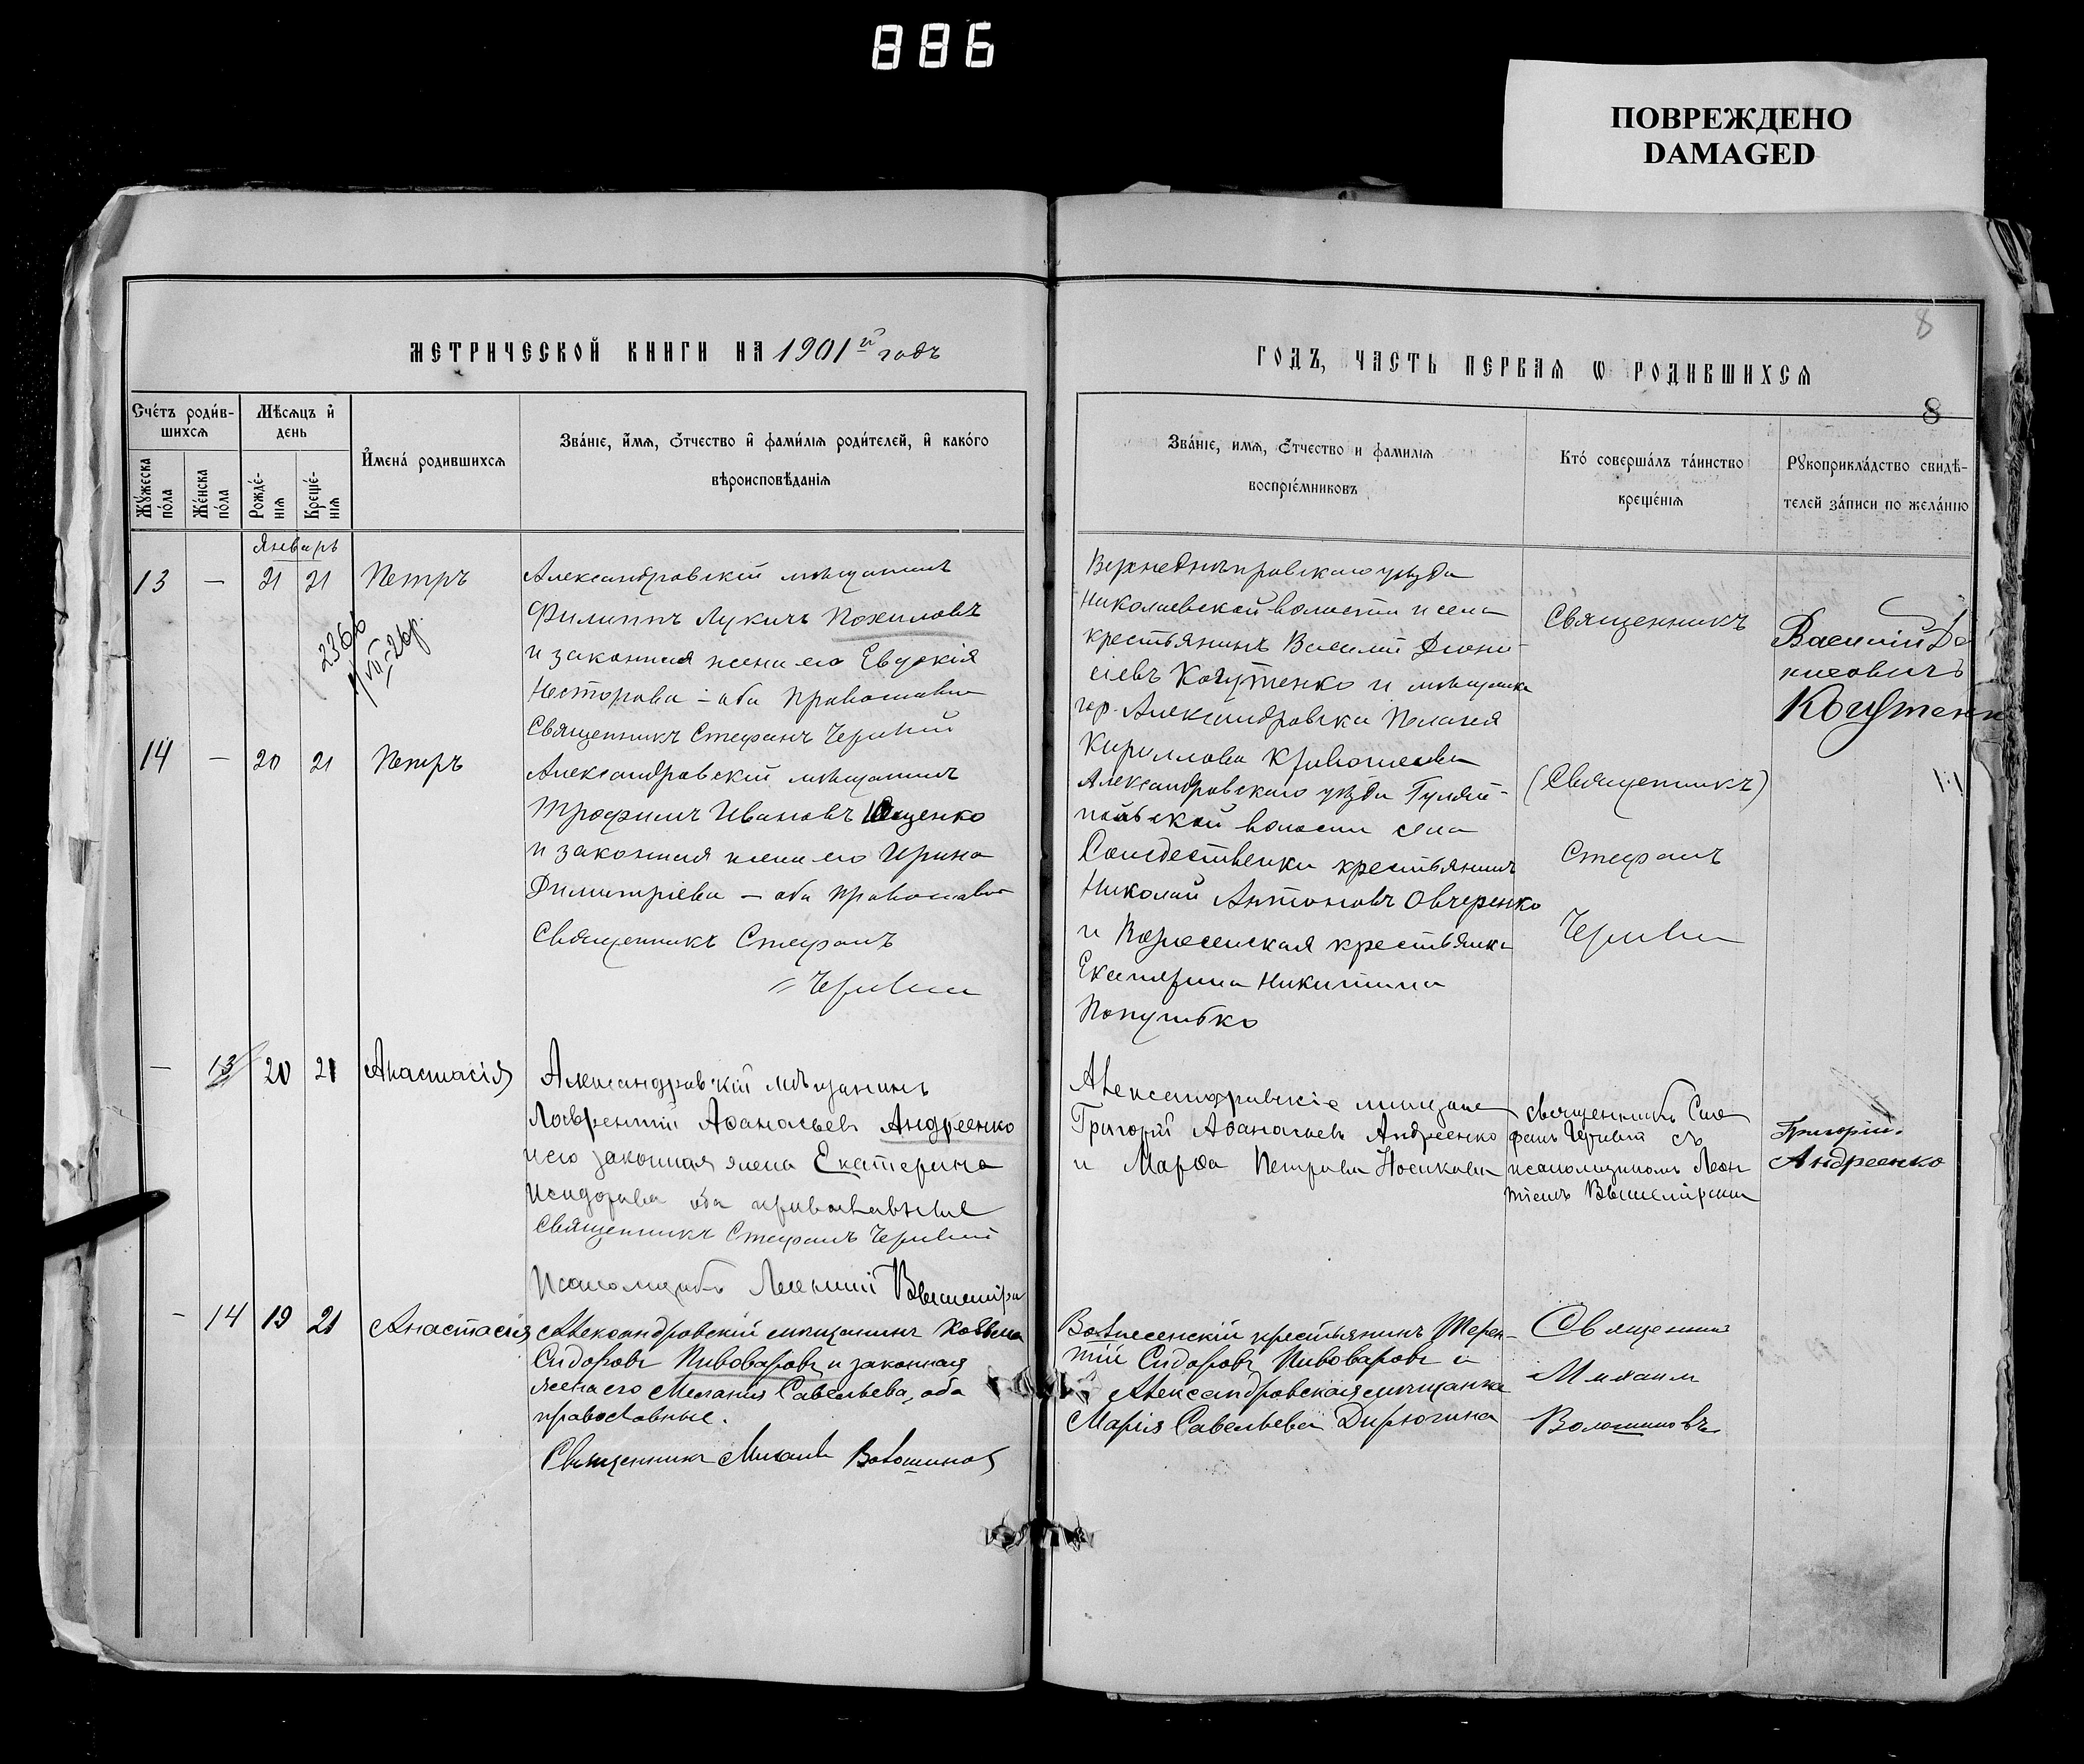 886
ПОВРЕЖДЕНО
DAMAGED
8
МЕТРИЧЕСКОЙ КНИГИ НА 1901й годъ
ГОДЪ, ЧАСТЬ ПЕРВАЯ Ѡ РОДИВШИХСЯ
8
Счéтъ роди́в-
шихся
Мѣсяцъ и҆
день
Мꙋ́жеска
по́ла
Же́нска
по́ла
Рожде́-
нія
Креще́-
нія
И҆мена́ родившихся
Зва́ніе, и҆́мя, ѻ҆́тчество и҆ фами́лія роди́телей, и҆ како́го
вѣроисповѣ́данія
Зва́ніе, имя, ѻ҆́тчество и фамилія
воспріе́мниковъ
Кто́ соверша́лъ та́инство
креще́нія
Рꙋкоприкла́дство свидѣ́-
телей за́писи по жела́нію
Январь
13 — 21 21 Петръ
Александровскій мѣщанинъ
Филиппъ Лукичъ Похиловъ
и законная жена его Евдокія
Несторова - оба православн
Священникъ Стефанъ Черивій
Верхнеднѣпровскаго уѣзда
Николаевской волости и села
крестьянинъ Василій Діони-
сіевъ Когутенко и мѣщанка
гор. Александровска Пелагея
Кириллова
Священникъ
Василій Де
нисовичъ
14 — 20 21 Петръ
Александровскій мѣщанинъ
Трофимъ Ивановъ Ющенко
и законная жена его Ирина
Димитріева — оба православн
Священникъ Стефанъ
Черивій
Александровскаго уѣзда Гуляй-
польской волости села
крестьянинъ
Николай Антоновъ Овчеренко
и Вознесенская крестьянка
Екатерина Никитина
(Священникъ)
Стефанъ
Черивій
— 13 20 21 Анастасія
Александровскій мѣщанинъ
Лаврентій Аѳанасьевъ Андреенко
и его законная жена Екатерина
Исидорова оба православные
Священникъ Стефанъ Черивій
Псаломщикъ Леонтій
Александровскіе мѣщане
Григорій Аѳанасьевъ Андреенко
и Марѳа Петрова Носикова
Священникъ Сте
фанъ Черивій съ
псаломщикомъ Леон
тіемъ
Григорій
Андреенко
- 14 19 21 Анастасія
Александровскій мѣщанинъ Козьма
Сидоровъ Пивоваровъ и законная
жена его Меланія Савельева, оба
православные.
Священникъ Михаилъ Волошиновъ
Вознесенскій крестьянинъ Терен-
тій Сидоровъ Пивоваровъ и
Александровская мѣщанка
Марія Савельева Дирюгина
Священник
Михаил
Волошиновъ